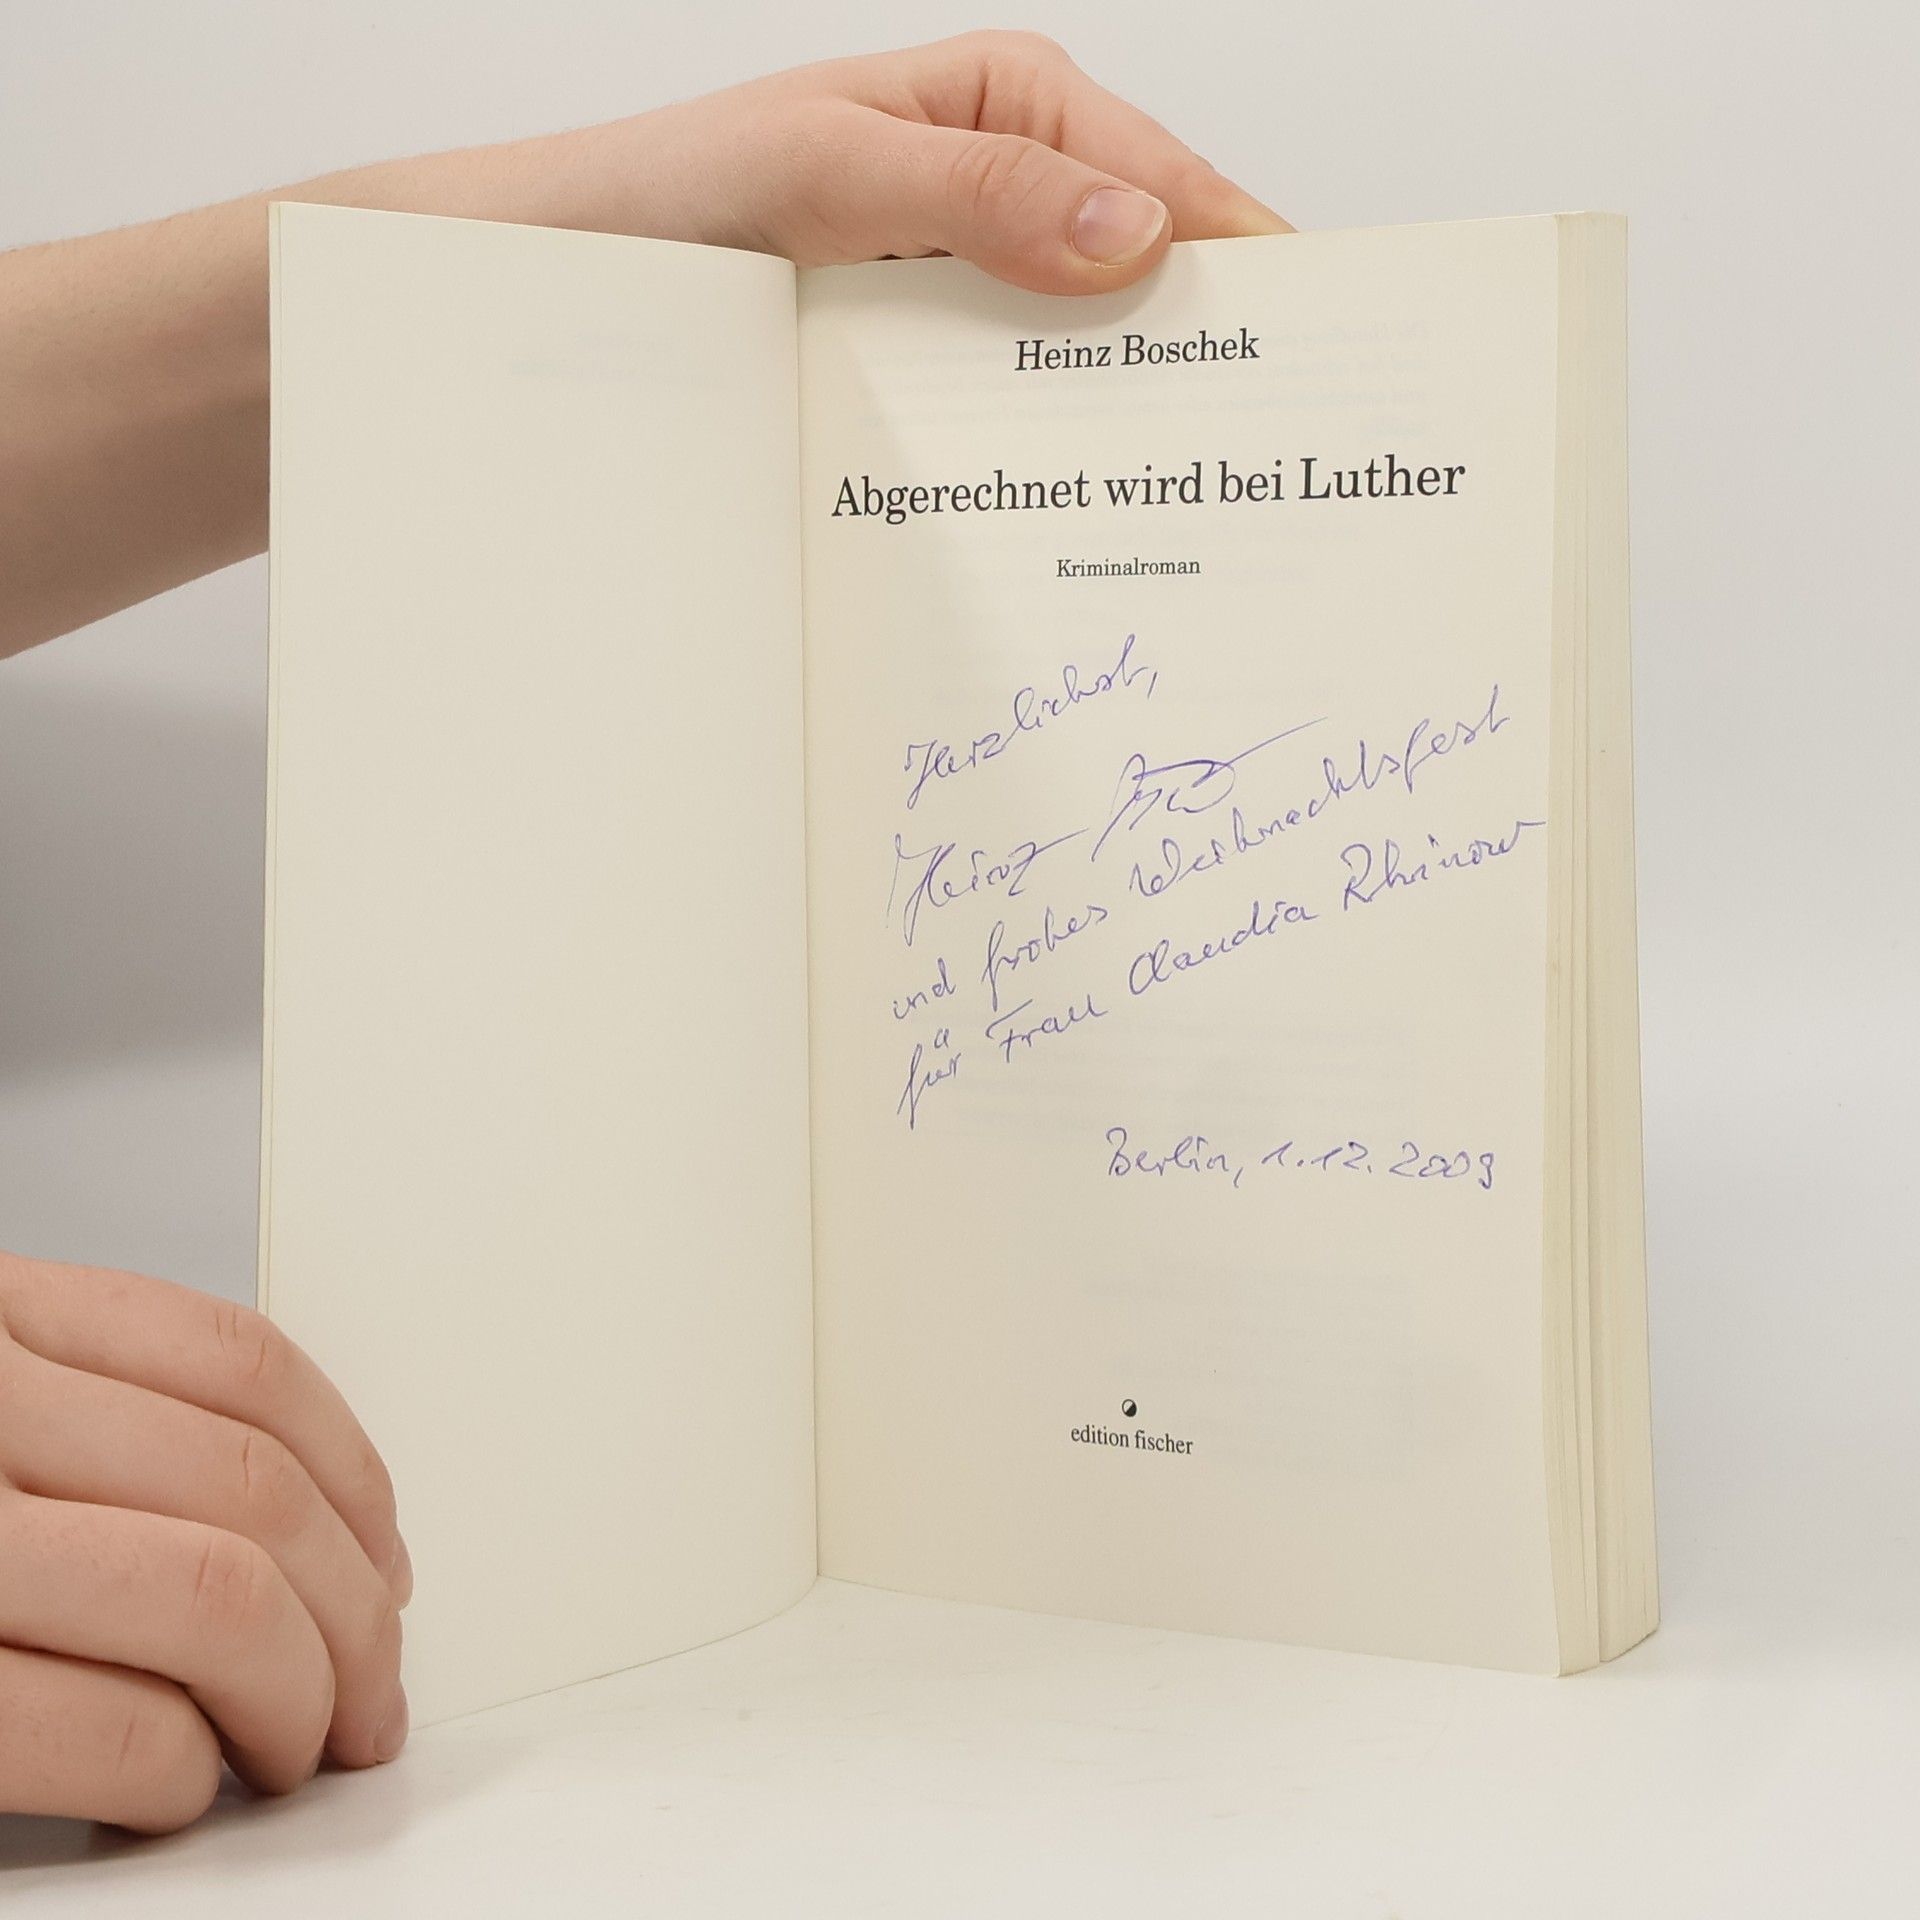 Heinz Boschek
Abgerechnet wird bei Luther
Kriminalroman
Herzlichst,
Heinz
und frohes Weihnachtsfest
für Frau Claudia Rhinow
Berlin, 1.12.2009
edition fischer